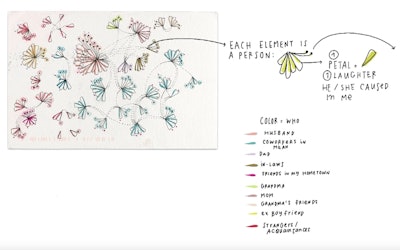 EACH ELEMENT IS
A PERSON:
① PETAL =
① LAUGHTER
HE/SHE CAUSED
IN ME
COLOR = WHO
HUSBAND
COWORKERS IN
MILAN
DAD
IN-LAWS
FRIENDS IN MY HOMETOWN
GRANDMA
MOM
GRANDMA'S FRIENDS
EX BOYFRIEND
STRANGERS/
ACQUAINTANCES